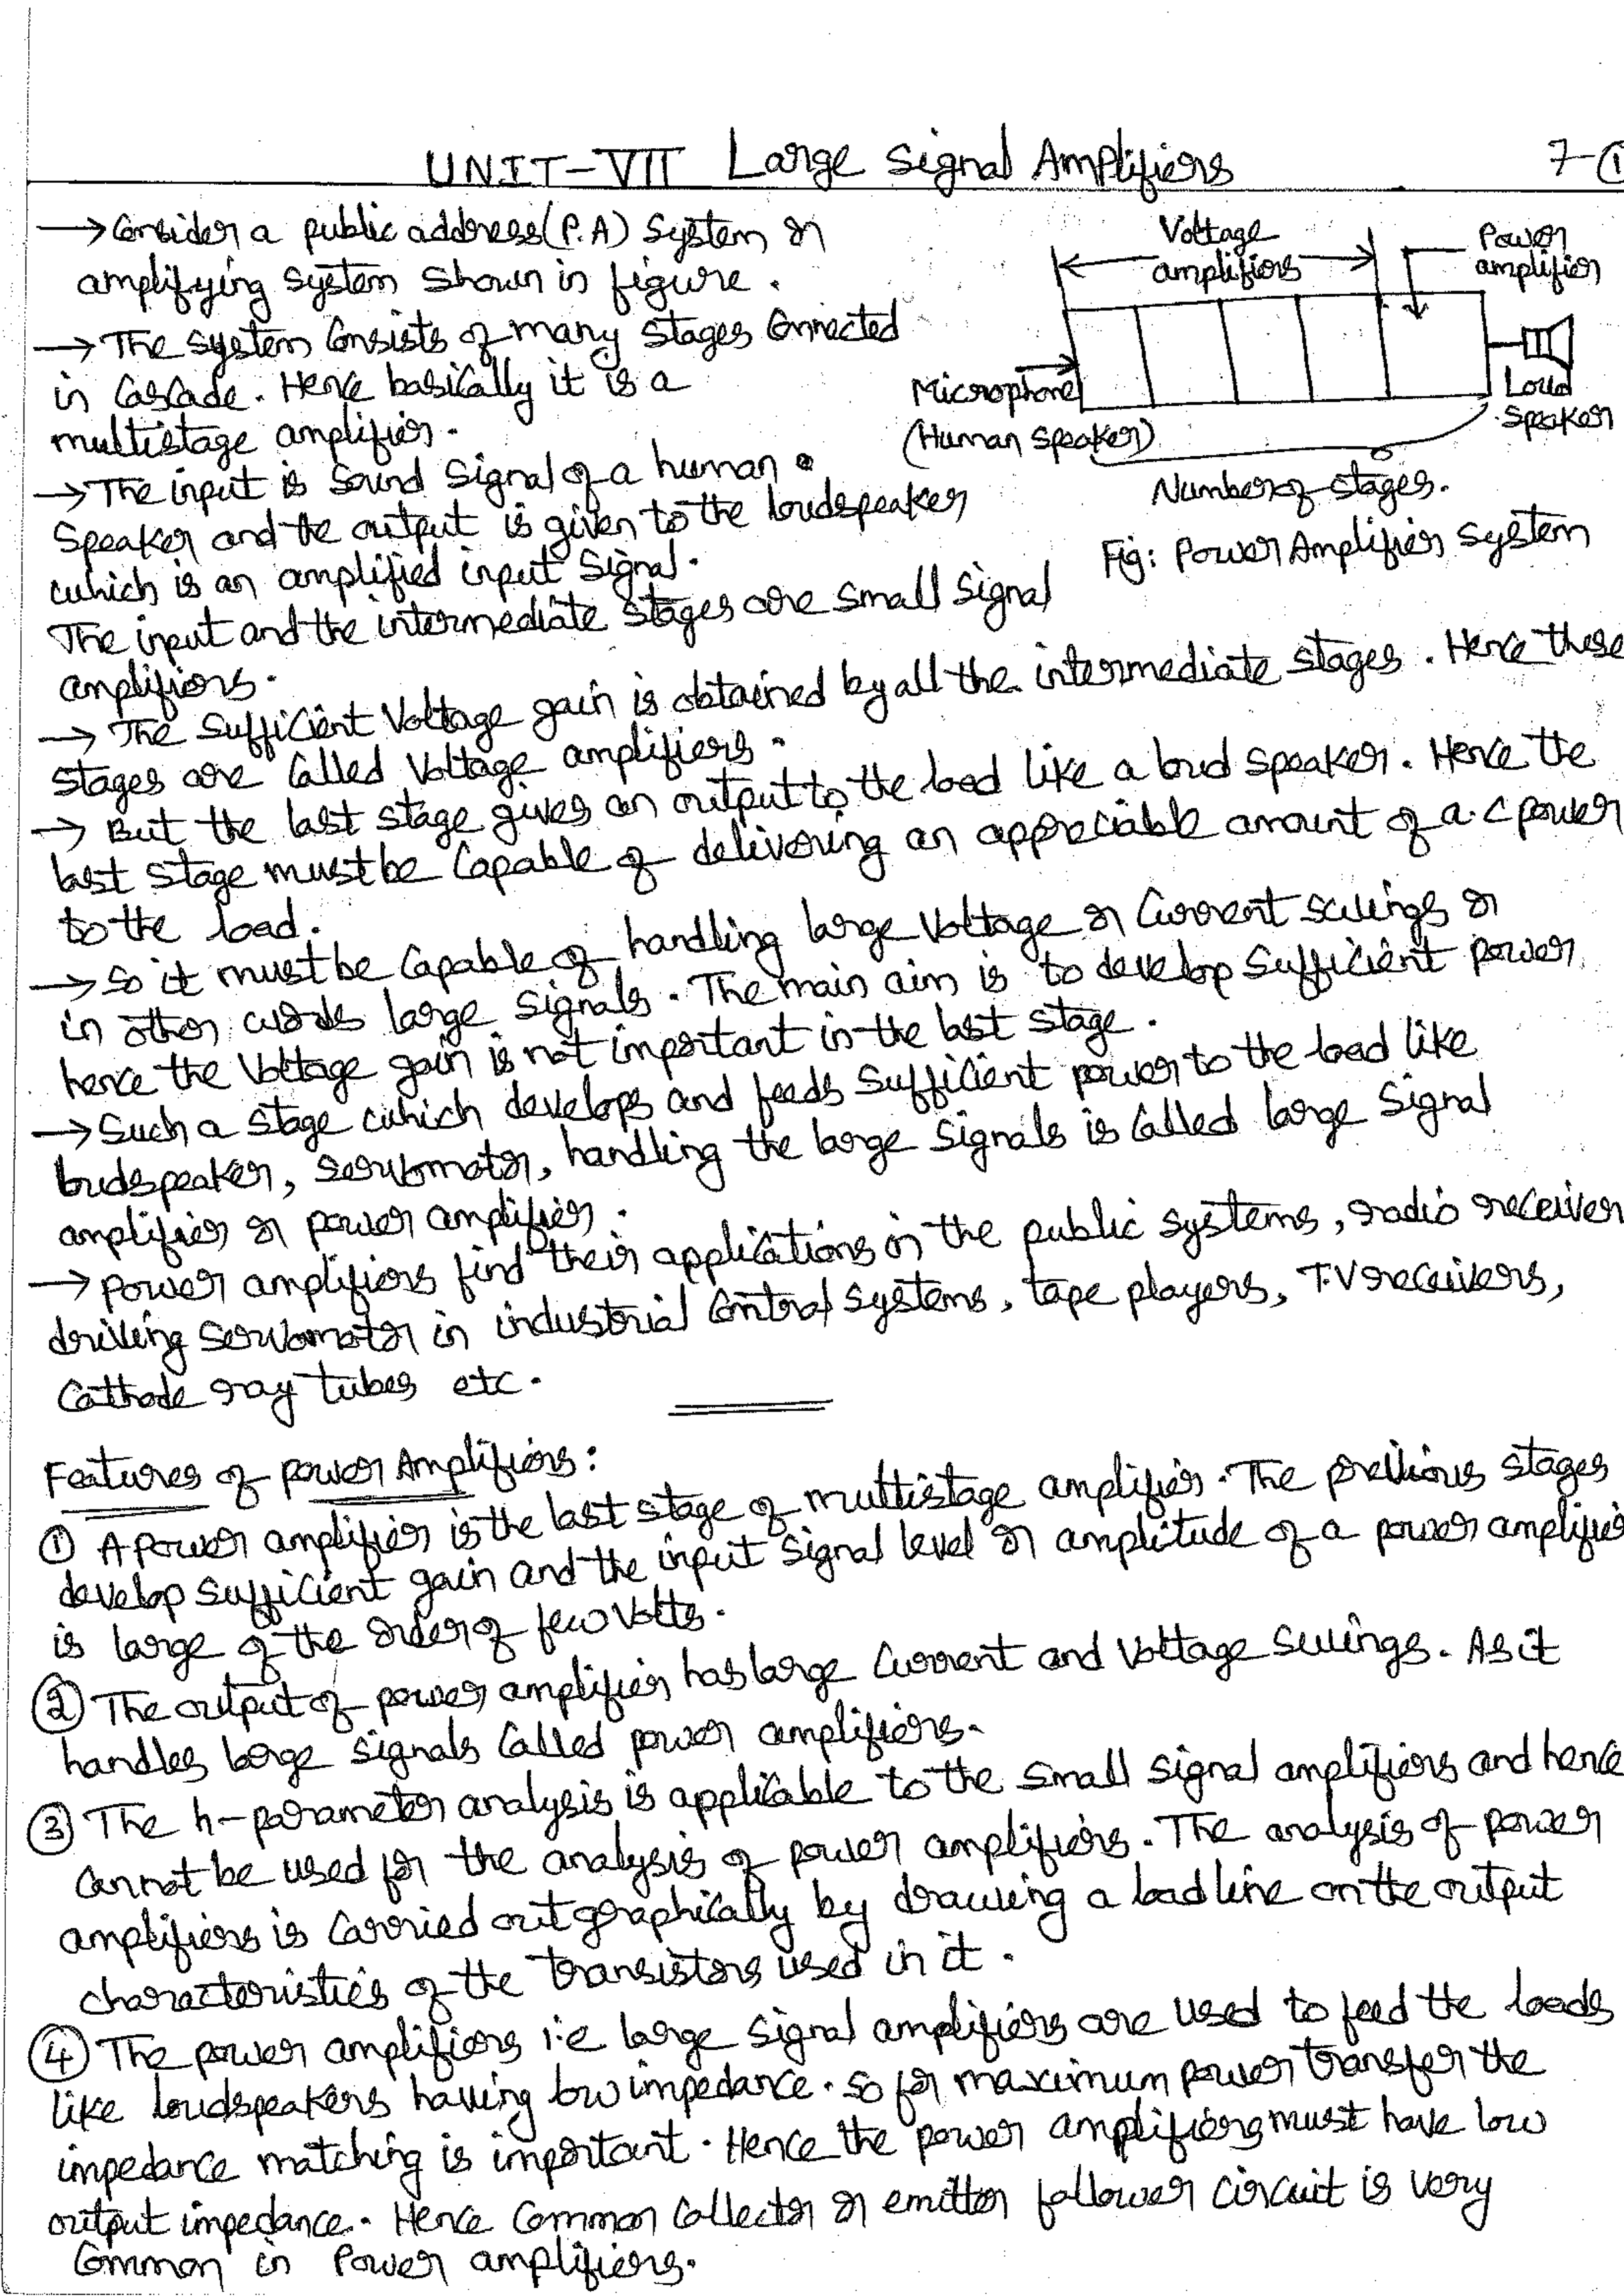 UNIT-VII Large Signal Amplifiers 7-①
→ Consider a public address (P.A) System or
amplifying system shown in figure.
→ The system consists of many stages connected
in Cascade. Hence basically it is a
multistage amplifier.
→ The input is sound signal of a human
speaker and the output is given to the loudspeaker
which is an amplified input signal.
The input and the intermediate stages are small signal
amplifiers.
Voltage
amplifiers
Power
amplifier
Microphone
(Human speaker)
Loud
speaker
Number of stages.
Fig: Power Amplifier System
→ The sufficient voltage gain is obtained by all the intermediate stages. Hence these
stages are called voltage amplifiers.
→ But the last stage gives an output to the load like a loud speaker. Hence the
last stage must be capable of delivering an appreciable amount of a.c power
to the load.
→ So it must be capable of handling large voltage or current swings or
in other words large signals. The main aim is to develop sufficient power
hence the voltage gain is not important in the last stage.
→ Such a stage which develops and feeds sufficient power to the load like
loudspeaker, servomotor, handling the large signals is called large signal
amplifier or power amplifier.
→ Power amplifiers find their applications in the public systems, radio receiver
driving servomotor in industrial control systems, tape players, T.V receivers,
Cathode ray tubes etc.
Features of power Amplifiers:
① A power amplifier is the last stage of multistage amplifier. The previous stages
develop sufficient gain and the input signal level or amplitude of a power amplifie
is large of the order of few volts.
② The output of power amplifier has large current and voltage swings. As it
handles large signals called power amplifiers.
③ The h-parameter analysis is applicable to the small signal amplifiers and hence
cannot be used for the analysis of power amplifiers. The analysis of power
amplifiers is carried out graphically by drawing a load line on the output
characteristics of the transistors used in it.
④ The power amplifiers i.e large signal amplifiers are used to feed the loads
like loudspeakers having low impedance. So for maximum power transfer the
impedance matching is important. Hence the power amplifiers must have low
output impedance. Hence common collector or emitter follower circuit is very
common in Power amplifiers.